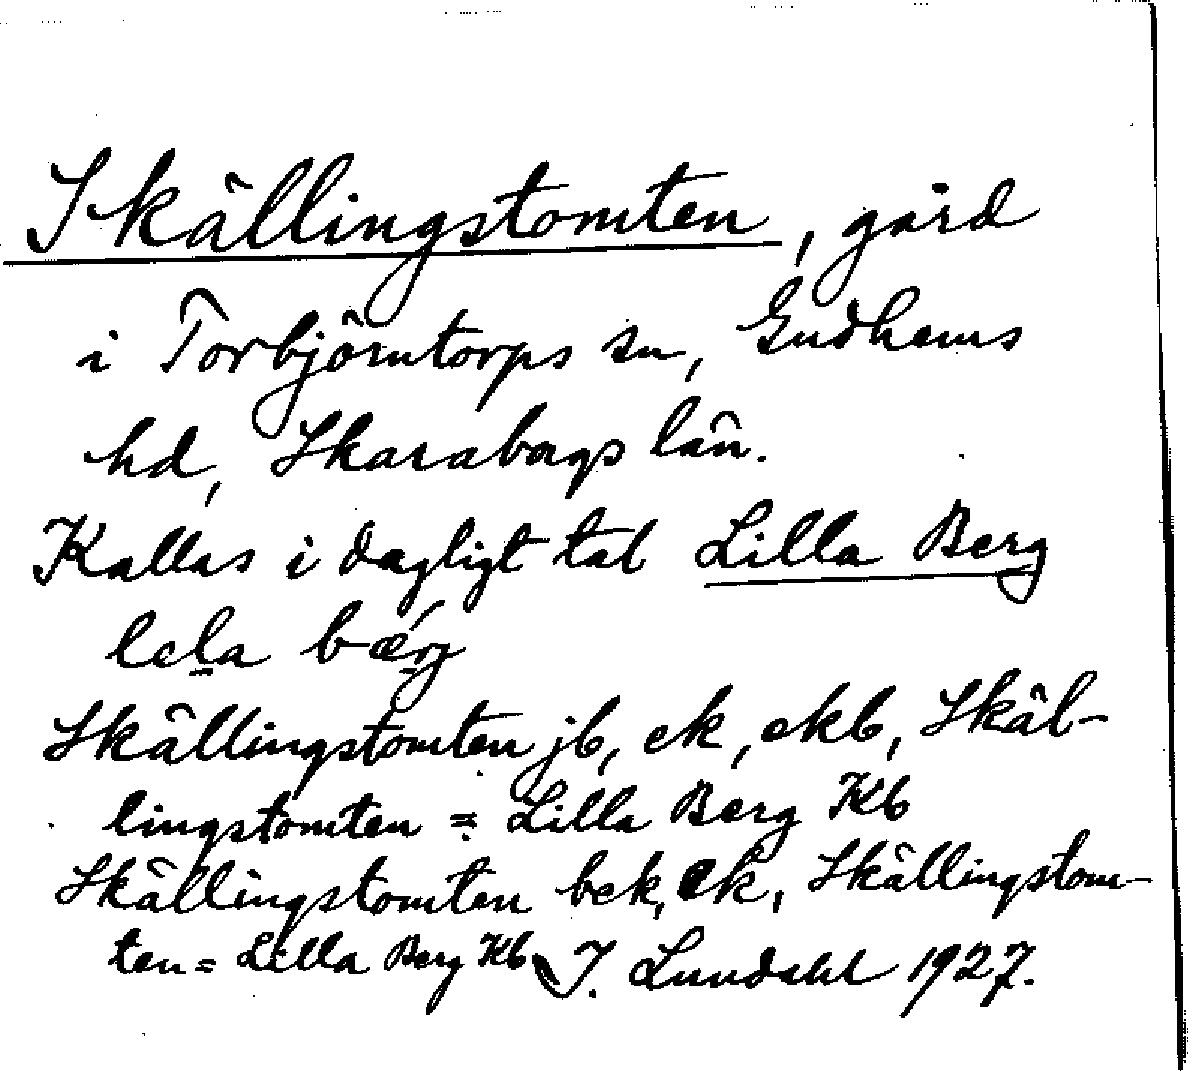 Skällingstomten, gård
i Torbjörntorps sn, Gudhems
hd, Skaraborgs län.
Kallas i dagligt tal Lilla Berg
lela bærj
Skällingstomten jb, ek, ekb, Skäl-
lingstomten = Lilla Berg Kb
Skällingstomten bek, ek, Skällingstom-
ten = Lilla Berg Kb I. Lundahl 1927.